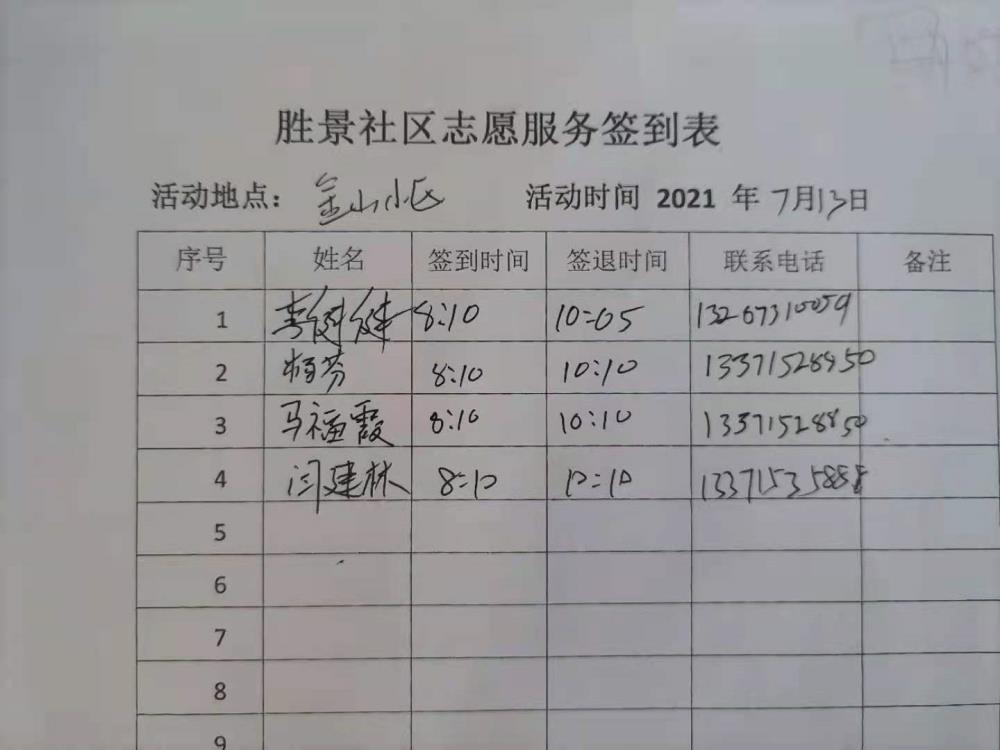 胜景社区志愿服务签到表
活动地点： 金山小区 活动时间 2021 年 7月13日
序号 姓名 签到时间 签退时间 联系电话 备注
1 李健健 8:10 10:05 13267310059
2 杨芬 8:10 10:10 13371528850
3 马福霞 8:10 10:10 13371528850
4 闫建林 8:10 10:10 13371535888
5
6
7
8
9